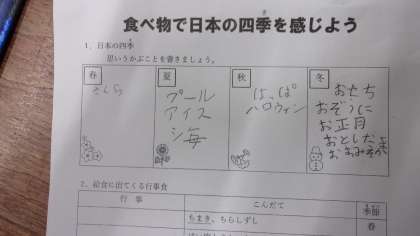 食べ物で日本の四季を感じよう
1.日本の四季
思いうかぶことを書きましょう。
春
さくら
夏
プール
アイス
海
秋
はっぱ
ハロウィン
冬
おもち
おぞうに
お正月
おとしだま
おおみそか
2.給食に出てくる行事食
行事 こんだて 季節
ちまき、ちらしずし 春